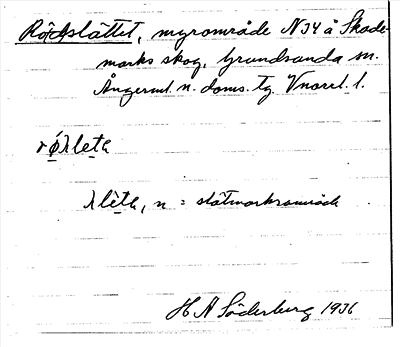 Rödslättet, myrområde N34 å Skade-
marks skog, Grundsunda sn.
Ångerml. n. doms. tg. Vnorrl. l.
slåtmarksområde
H A Söderberg 1936